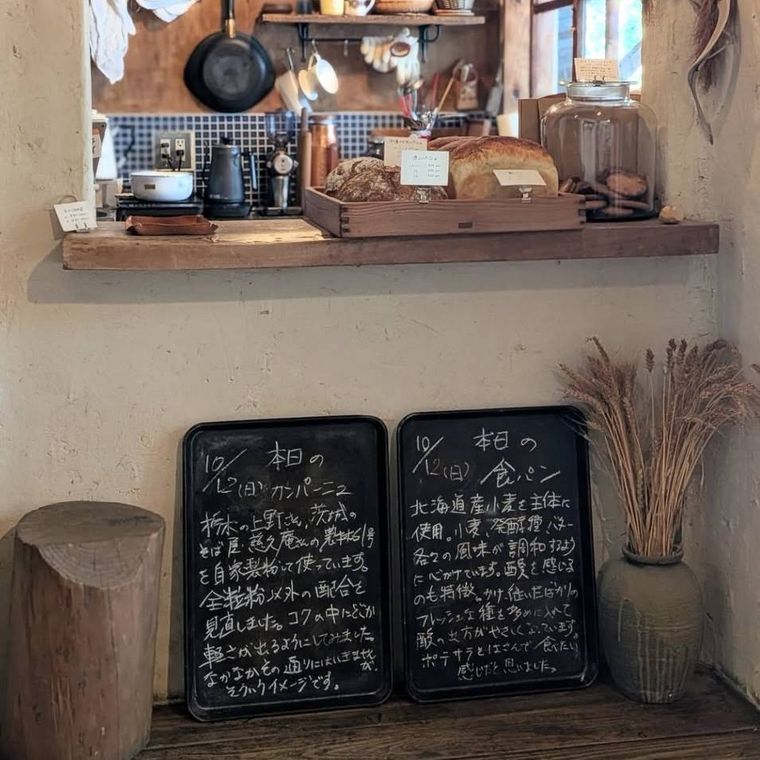 10/12(日)
本日の
カンパーニュ
栃木の上野さん、茨城の
そば屋 慈久庵さんの農林61号
を自家製粉して使っています。
全粒粉以外の配合を
見直しました。コクの中にどこか
軽さが出るようにしてみました。
なかなかその通りにはいきませんが、
そういうイメージです。
10/12(日)
本日の
食パン
北海道産小麦を主体に
使用。小麦、発酵種、バター
各々の風味が調和するよう
に心がけています。酸を感じる
のも特徴。かけ継いだばかりの
フレッシュな種を多めに入れて
酸の出方がやさしくなっています。
ポテサラとはさんで食べたい
感じだと思いました。